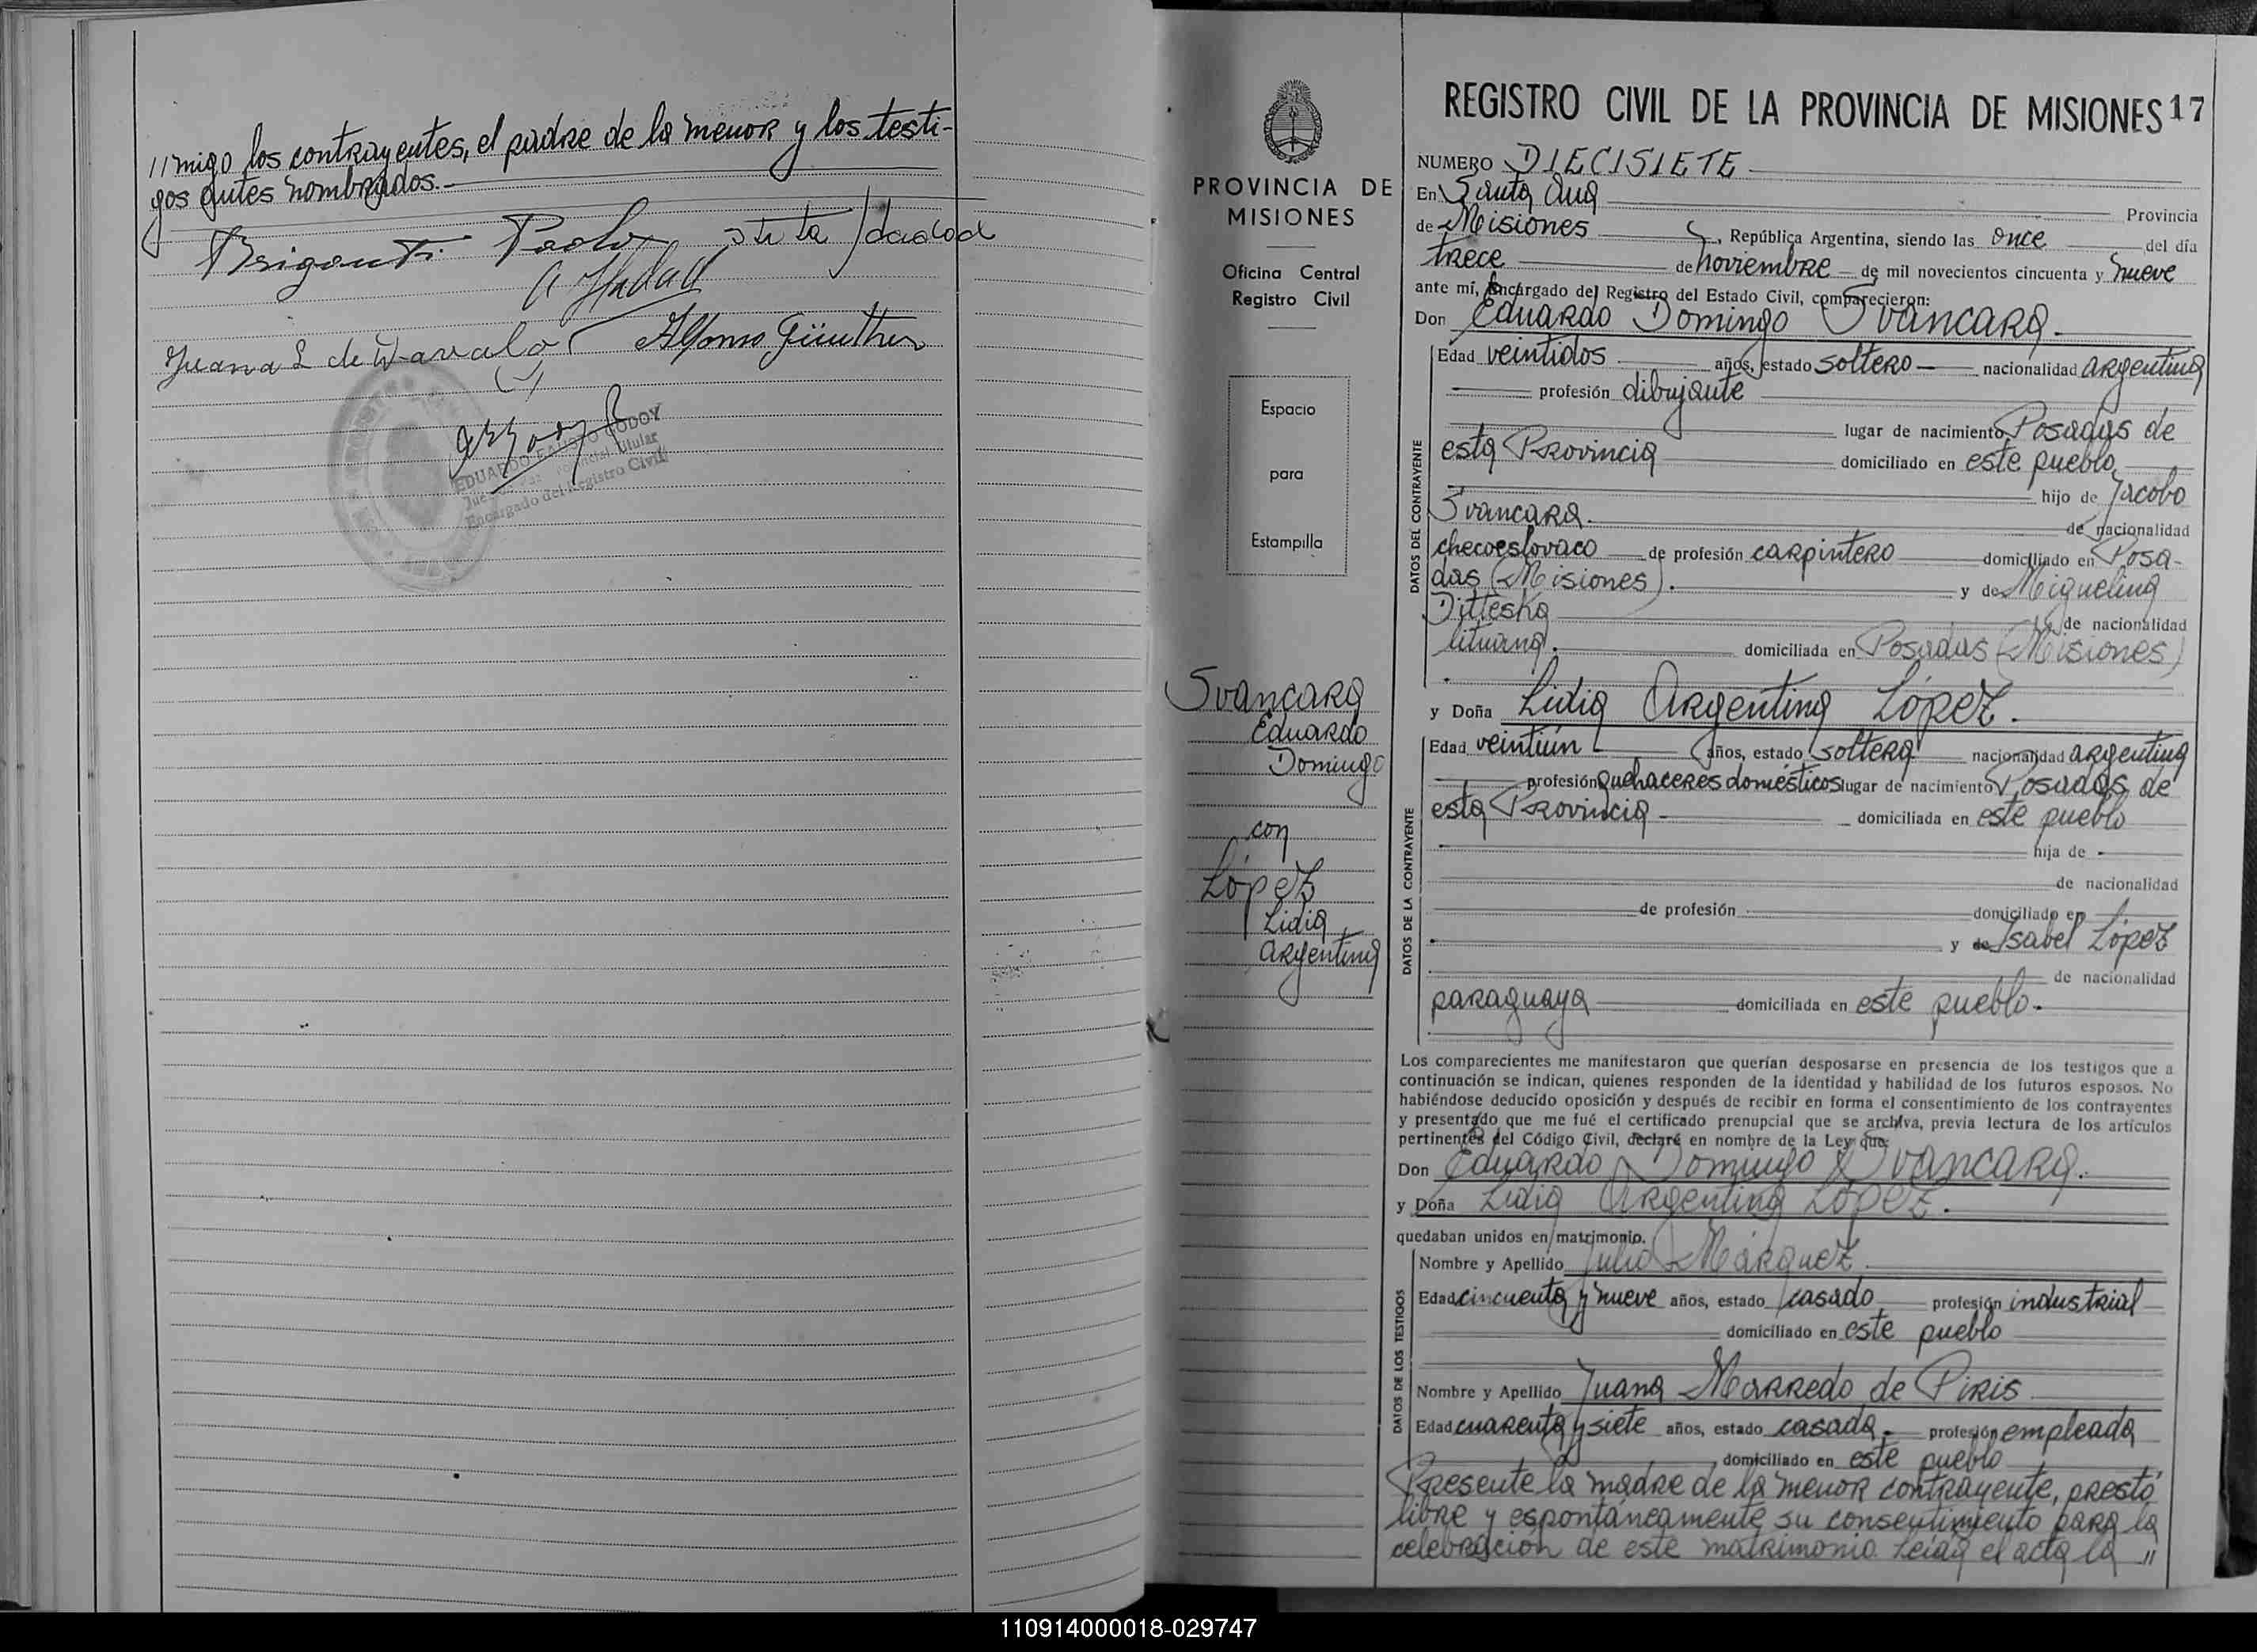 //migo los contrayentes, el padre de la menor y los testi-
gos antes nombrados.-
Briganti Paolo
Juana L de
Alfonso Günther
EDUARDO FAUSTO GODOY
Juez
Titular
Encargado del Registro Civil
PROVINCIA DE
MISIONES
Oficina Central
Registro Civil
Espacio
para
Estampilla
Svancara
Eduardo
Domingo
con
López
Lidia
Argentina
REGISTRO CIVIL DE LA PROVINCIA DE MISIONES 17
NUMERO DIECISIETE
En Santa Ana Provincia
de Misiones, República Argentina, siendo las once del día
trece de noviembre de mil novecientos cincuenta y nueve
ante mí, Encargado del Registro del Estado Civil, comparecieron:
Don Eduardo Domingo Svancara.
DATOS DEL CONTRAYENTE
Edad veintidos años, estado soltero nacionalidad argentina
profesión dibujante
lugar de nacimiento Posadas de
esta Provincia domiciliado en este pueblo,
hijo de Jacobo
Svancara. de nacionalidad
checoeslovaco de profesión carpintero domiciliado en Posa-
das (Misiones). y de Miguelina
Ditteska de nacionalidad
lituana. domiciliada en Posadas (Misiones)
y Doña Lidia Argentina López.
DATOS DE LA CONTRAYENTE
Edad veintiún años, estado soltera nacionalidad argentina
profesión quehaceres domésticos lugar de nacimiento Posadas de
esta Provincia domiciliada en este pueblo
hija de
de nacionalidad
de profesión domiciliado en
y de Isabel López
de nacionalidad
paraguaya domiciliada en este pueblo.
Los comparecientes me manifestaron que querían desposarse en presencia de los testigos que a
continuación se indican, quienes responden de la identidad y habilidad de los futuros esposos. No
habiéndose deducido oposición y después de recibir en forma el consentimiento de los contrayentes
y presentado que me fué el certificado prenupcial que se archiva, previa lectura de los artículos
pertinentes del Código Civil, declaré en nombre de la Ley que:
Don Eduardo Domingo Svancara.
y Doña Lidia Argentina López.
quedaban unidos en matrimonio.
DATOS DE LOS TESTIGOS
Nombre y Apellido Julio Márquez
Edad cincuenta y nueve años, estado casado profesión industrial
domiciliado en este pueblo
Nombre y Apellido Juana Marredo de Piris
Edad cuarenta y siete años, estado casada profesión empleada
domiciliado en este pueblo
Presente la madre de la menor contrayente, prestó
libre y espontáneamente su consentimiento para la
celebración de este matrimonio. Leída el acta la //
110914000018-029747